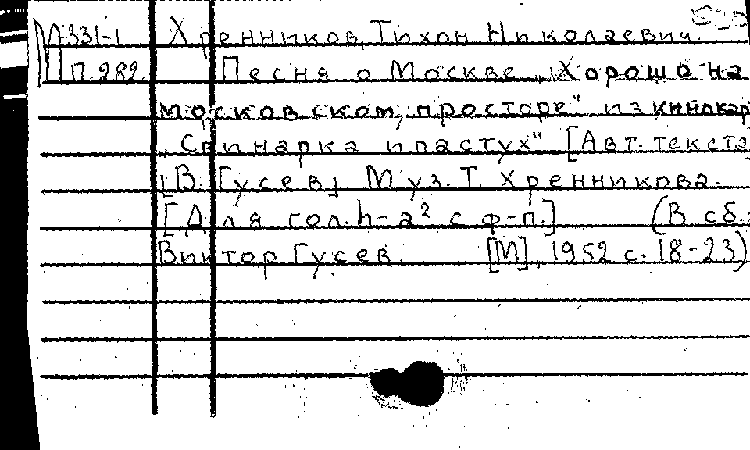 М 331-1 Хренников, Тихон Николаевич.
П 282 Песня о Москве „Хорошо на
московском просторе" из кинокар
„Свинарка и пастух" [Авт. текста
[В. Гусев] Муз. Т. Хренникова.
[Для гол. h-a² с ф-п.] (В сб.:
Виктор Гусев. [М], 1952 с. 18-23)